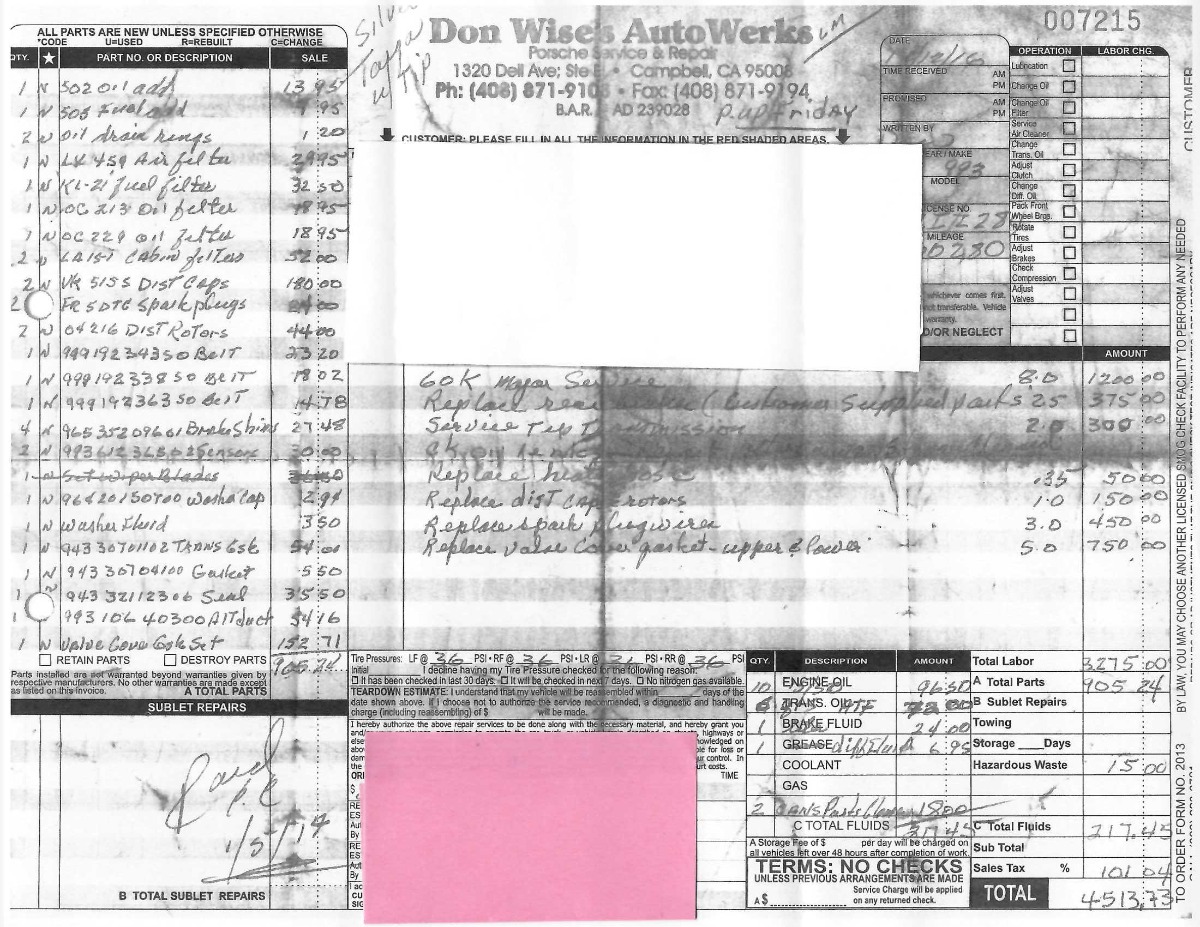 ALL PARTS ARE NEW UNLESS SPECIFIED OTHERWISE
*CODE U=USED R=REBUILT C=CHANGE
QTY. ★ PART NO. OR DESCRIPTION SALE
1 N 502 oil add 13 95
1 N 503 Fuel add 9 95
2 N oil drain rings 1 20
1 N LX 459 Air filter 29 95
1 N KL-21 fuel filter 32 50
1 N OC 213 Oil filter 18 95
1 N OC 229 oil filter 18 95
2 N LA157 Cabin filters 52 00
2 N VK 515S DIST Caps 180 00
FR5DTC Spark plugs 24 00
2 N 04216 DIST Rotors 44 00
1 N 99919234350 Belt 23 20
1 N 99919233850 Belt 18 02
1 N 99919236350 Belt 14 78
4 N 96535209601 Brake Shims 27 48
2 N Sensors 30 00
1 Set wiper Blades
1 N 96420150700 Washer Cap 2 94
1 N Washer Fluid 3 50
1 N 94330701102 TRANS Gsk 54 00
1 N 94330704100 Gasket 5 50
1 94332112306 Seal 35 50
1 99310640300 Alt duct 54 16
1 N Valve Cover Gsk Set 152 71
RETAIN PARTS DESTROY PARTS 905 24
Parts installed are not warranted beyond warranties given by
respective manufacturers. No other warranties are made except
as listed on this invoice. A TOTAL PARTS
SUBLET REPAIRS
Paid
1/5/17
B TOTAL SUBLET REPAIRS
Silver
Targa
w/ Tip
Don Wise's AutoWerks
Porsche Service & Repair
1320 Dell Ave; Ste • Campbell, CA 95008
Ph: (408) 871-9108 • Fax: (408) 871-9194
B.A.R. AD 239028
P.up Friday
CUSTOMER: PLEASE FILL IN ALL THE INFORMATION IN THE RED SHADED AREAS.
007215
DATE
TIME RECEIVED AM PM
PROMISED AM PM
WRITTEN BY
YEAR / MAKE
993
MODEL
LICENSE NO.
MILEAGE
whichever comes first.
not transferable. Vehicle
warranty.
D/OR NEGLECT
OPERATION LABOR CHG.
Lubrication
Change Oil
Change Oil Filter
Service Air Cleaner
Change Trans. Oil
Adjust Clutch
Change Diff. Oil
Pack Front Wheel Brgs.
Rotate Tires
Adjust Brakes
Check Compression
Adjust Valves
AMOUNT
60K Major Service 8.0 1200 00
Replace rear (Customer Supplied parts 2.5 375 00
Service Tip Transmission 2.0 300 00
Replace hose .35 50 00
Replace dist cap & rotors 1.0 150 00
Replace spark plug wires 3.0 450 00
Replace valve cover gasket - upper & lower 5.0 750 00
Tire Pressures: LF @ 36 PSI • RF @ 36 PSI • LR @ PSI • RR @ 36 PSI
Initial I decline having my Tire Pressure checked for the following reason:
It has been checked in last 30 days. It will be checked in next 7 days. No nitrogen gas available.
TEARDOWN ESTIMATE: I understand that my vehicle will be reassembled within days of the
date shown above. If I choose not to authorize the service recommended, a diagnostic and handling
charge (including reassembling) of $ will be made.
I hereby authorize the above repair services to be done along with the necessary material, and hereby grant you
TIME
QTY. DESCRIPTION AMOUNT
10 ENGINE OIL 96 50
6 TRANS. OIL 72 00
1 BRAKE FLUID 24 00
1 GREASE diff fluid 6 95
COOLANT
GAS
2 CANS Parts Cleaner 18 00
C TOTAL FLUIDS 217 45
A Storage Fee of $ per day will be charged on
all vehicles left over 48 hours after completion of work.
TERMS: NO CHECKS
UNLESS PREVIOUS ARRANGEMENTS ARE MADE
Service Charge will be applied
A $ on any returned check.
Total Labor 3275 00
A Total Parts 905 24
B Sublet Repairs
Towing
Storage Days
Hazardous Waste 15 00
C Total Fluids 217.45
Sub Total
Sales Tax % 101 04
TOTAL 4513.73
CUSTOMER
BY LAW, YOU MAY CHOOSE ANOTHER LICENSED SMOG CHECK FACILITY TO PERFORM ANY NEEDED
TO ORDER FORM NO. 2013